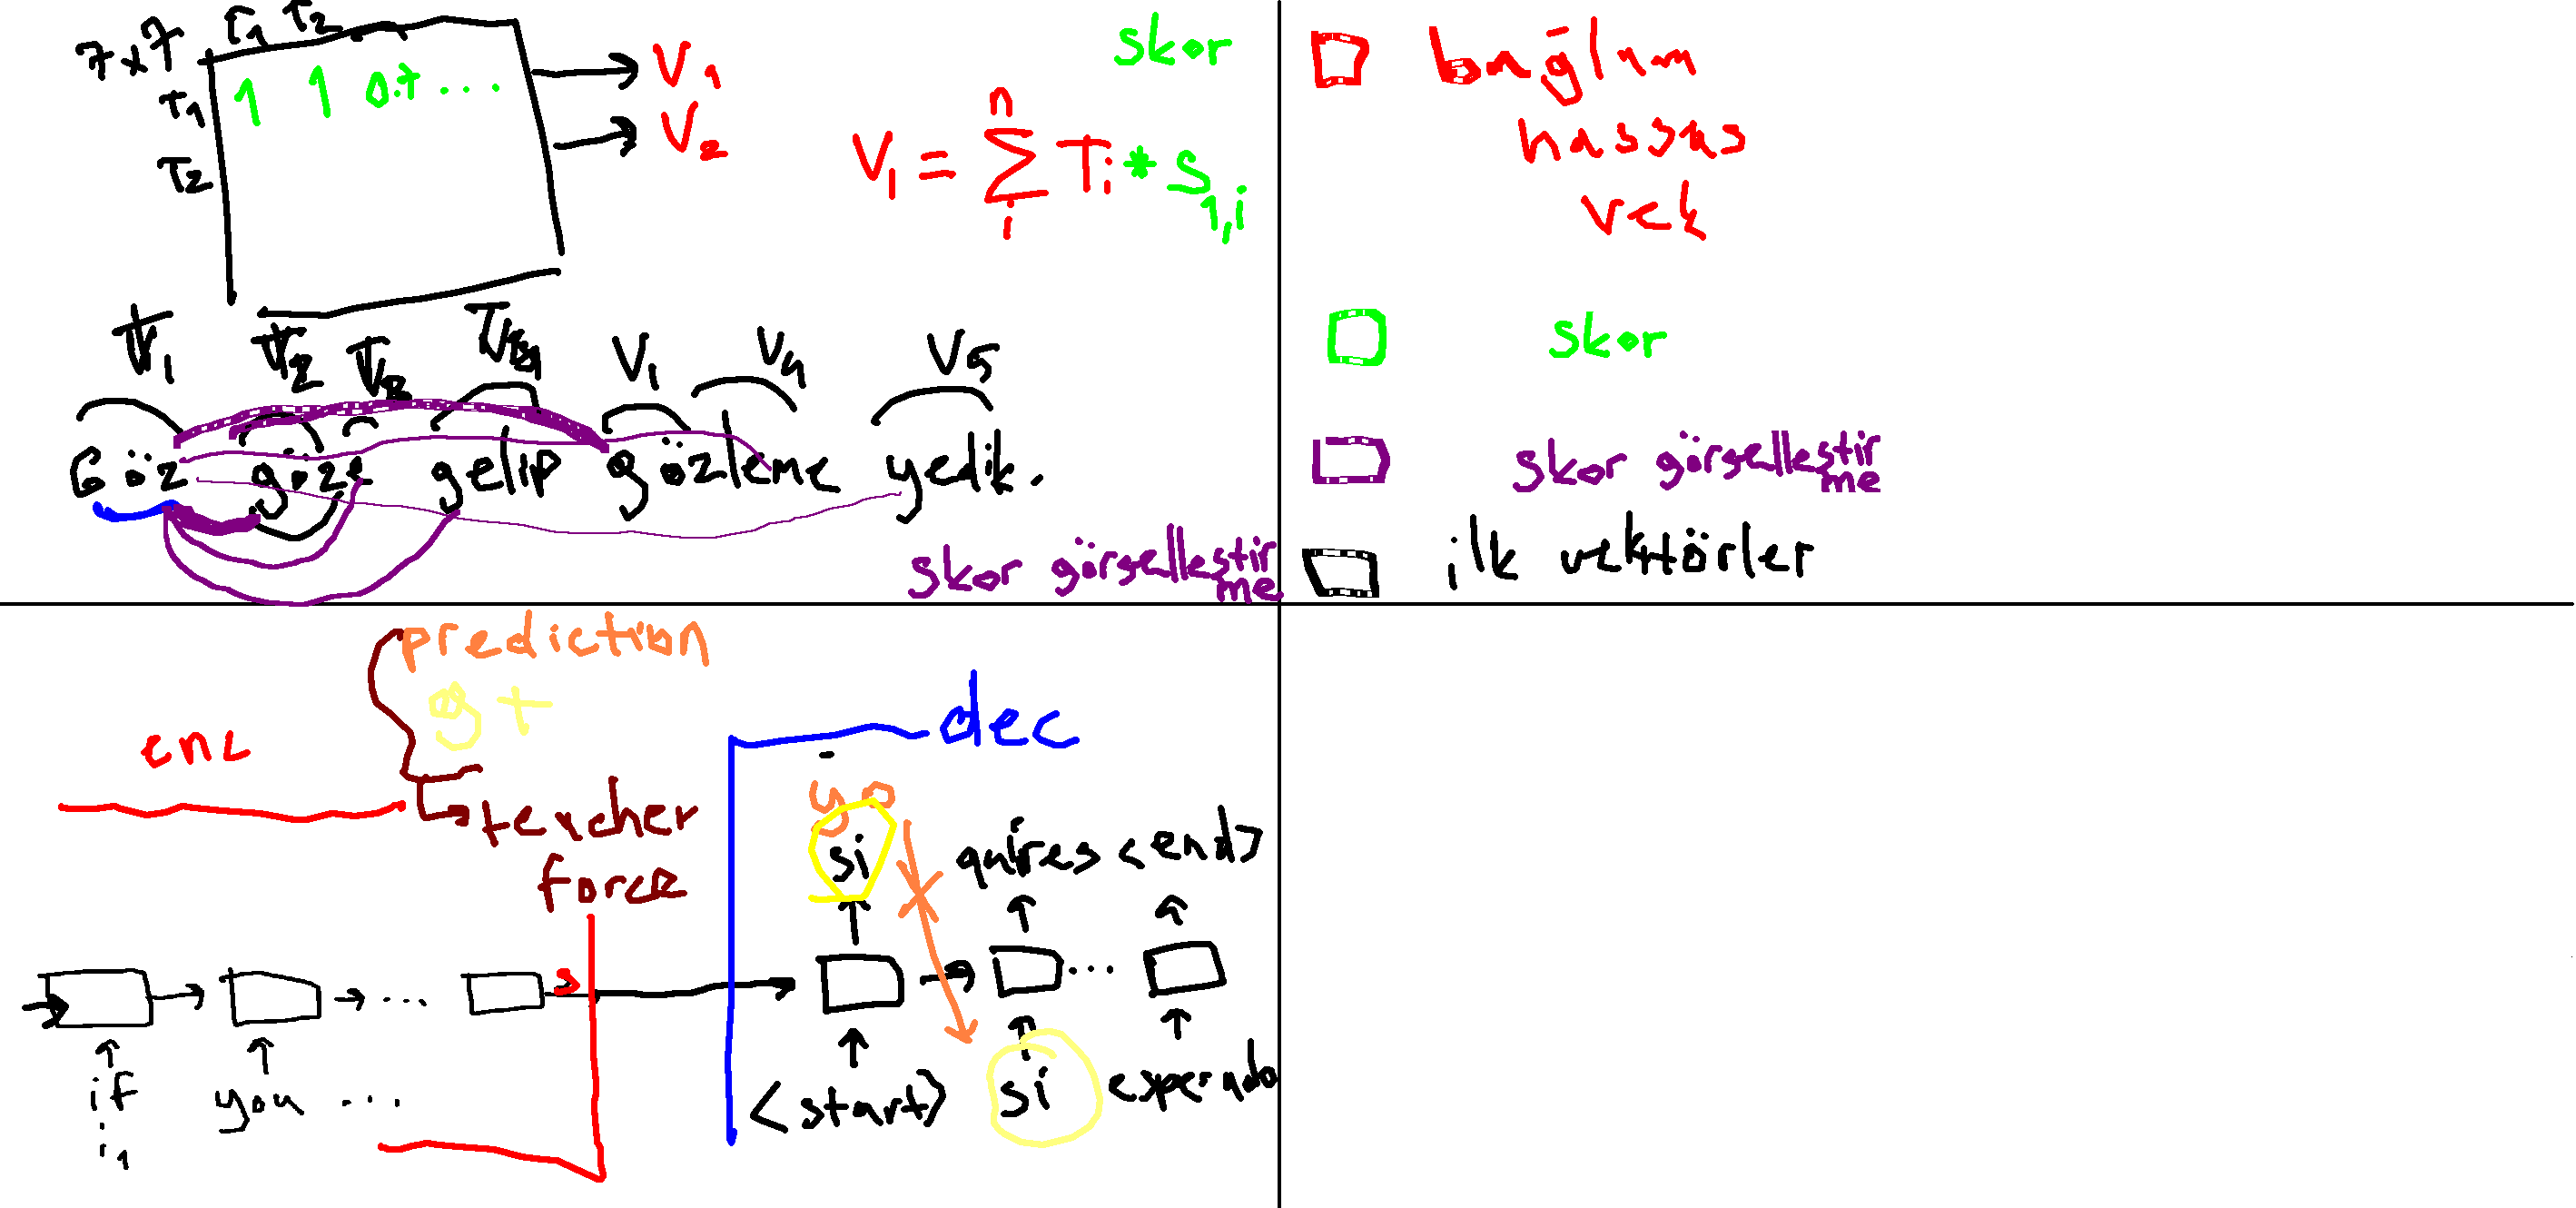 7x7 T1 T2
T1 1 1 0.7 ...
T2
V1
V2
skor
V1 = n Σ i Ti * S1,i
V1 V4 V5
Göz göze gelip gözleme yedik.
skor görselleştir
me
bağlam
hassas
vek
skor
skor görselleştir
me
ilk vektörler
prediction
gt
enc
teacher
force
dec
yo
si quires <end>
...
...
if you ...
i1
<start> si esperado